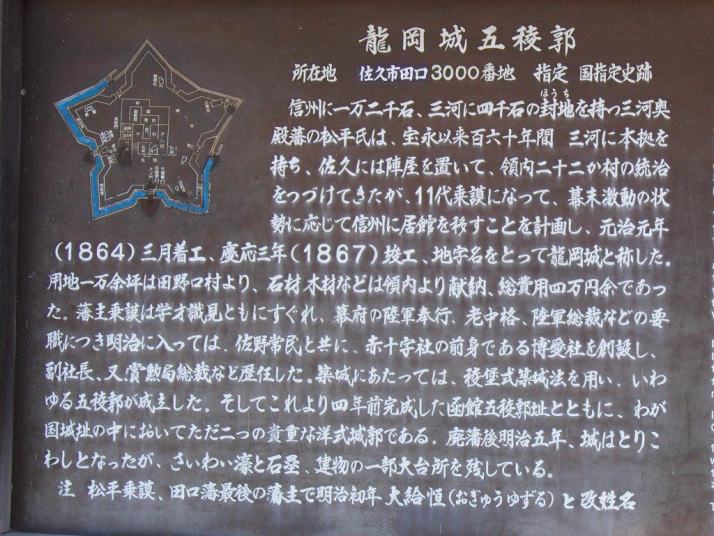 龍岡城五稜郭
所在地　佐久市田口3000番地　指定　国指定史跡
信州に一万二千石、三河に四千石の封地(ほうち)を持つ三河奥
殿藩の松平氏は、宝永以来百六十年間　三河に本拠を
持ち、佐久には陣屋を置いて、領内二十二か村の統治
をつづけてきたが、11代乗謨になって、幕末激動の状
勢に応じて信州に居館を移すことを計画し、元治元年
(1864)三月着工、慶応三年(1867)竣工、地字名をとって龍岡城と称した。
用地一万余坪は田野口村より、石材木材などは領内より献納、総費用四万円余であっ
た。藩主乗謨は学才識見ともにすぐれ、幕府の陸軍奉行、老中格、陸軍総裁などの要
職につき明治に入っては、佐野常民と共に、赤十字社の前身である博愛社を創設し、
副社長、又賞勲局総裁など歴任した。築城にあたっては、稜堡式築城法を用い、いわ
ゆる五稜郭が成立した。そしてこれより四年前完成した函館五稜郭址とともに、わが
国城址の中においてただ二つの貴重な洋式城郭である。廃藩後明治五年、城はとりこ
わしとなったが、さいわい濠と石塁、建物の一部大台所を残している。
注　松平乗謨、田口藩最後の藩主で明治初年　大給恒(おぎゅうゆずる)と改姓名